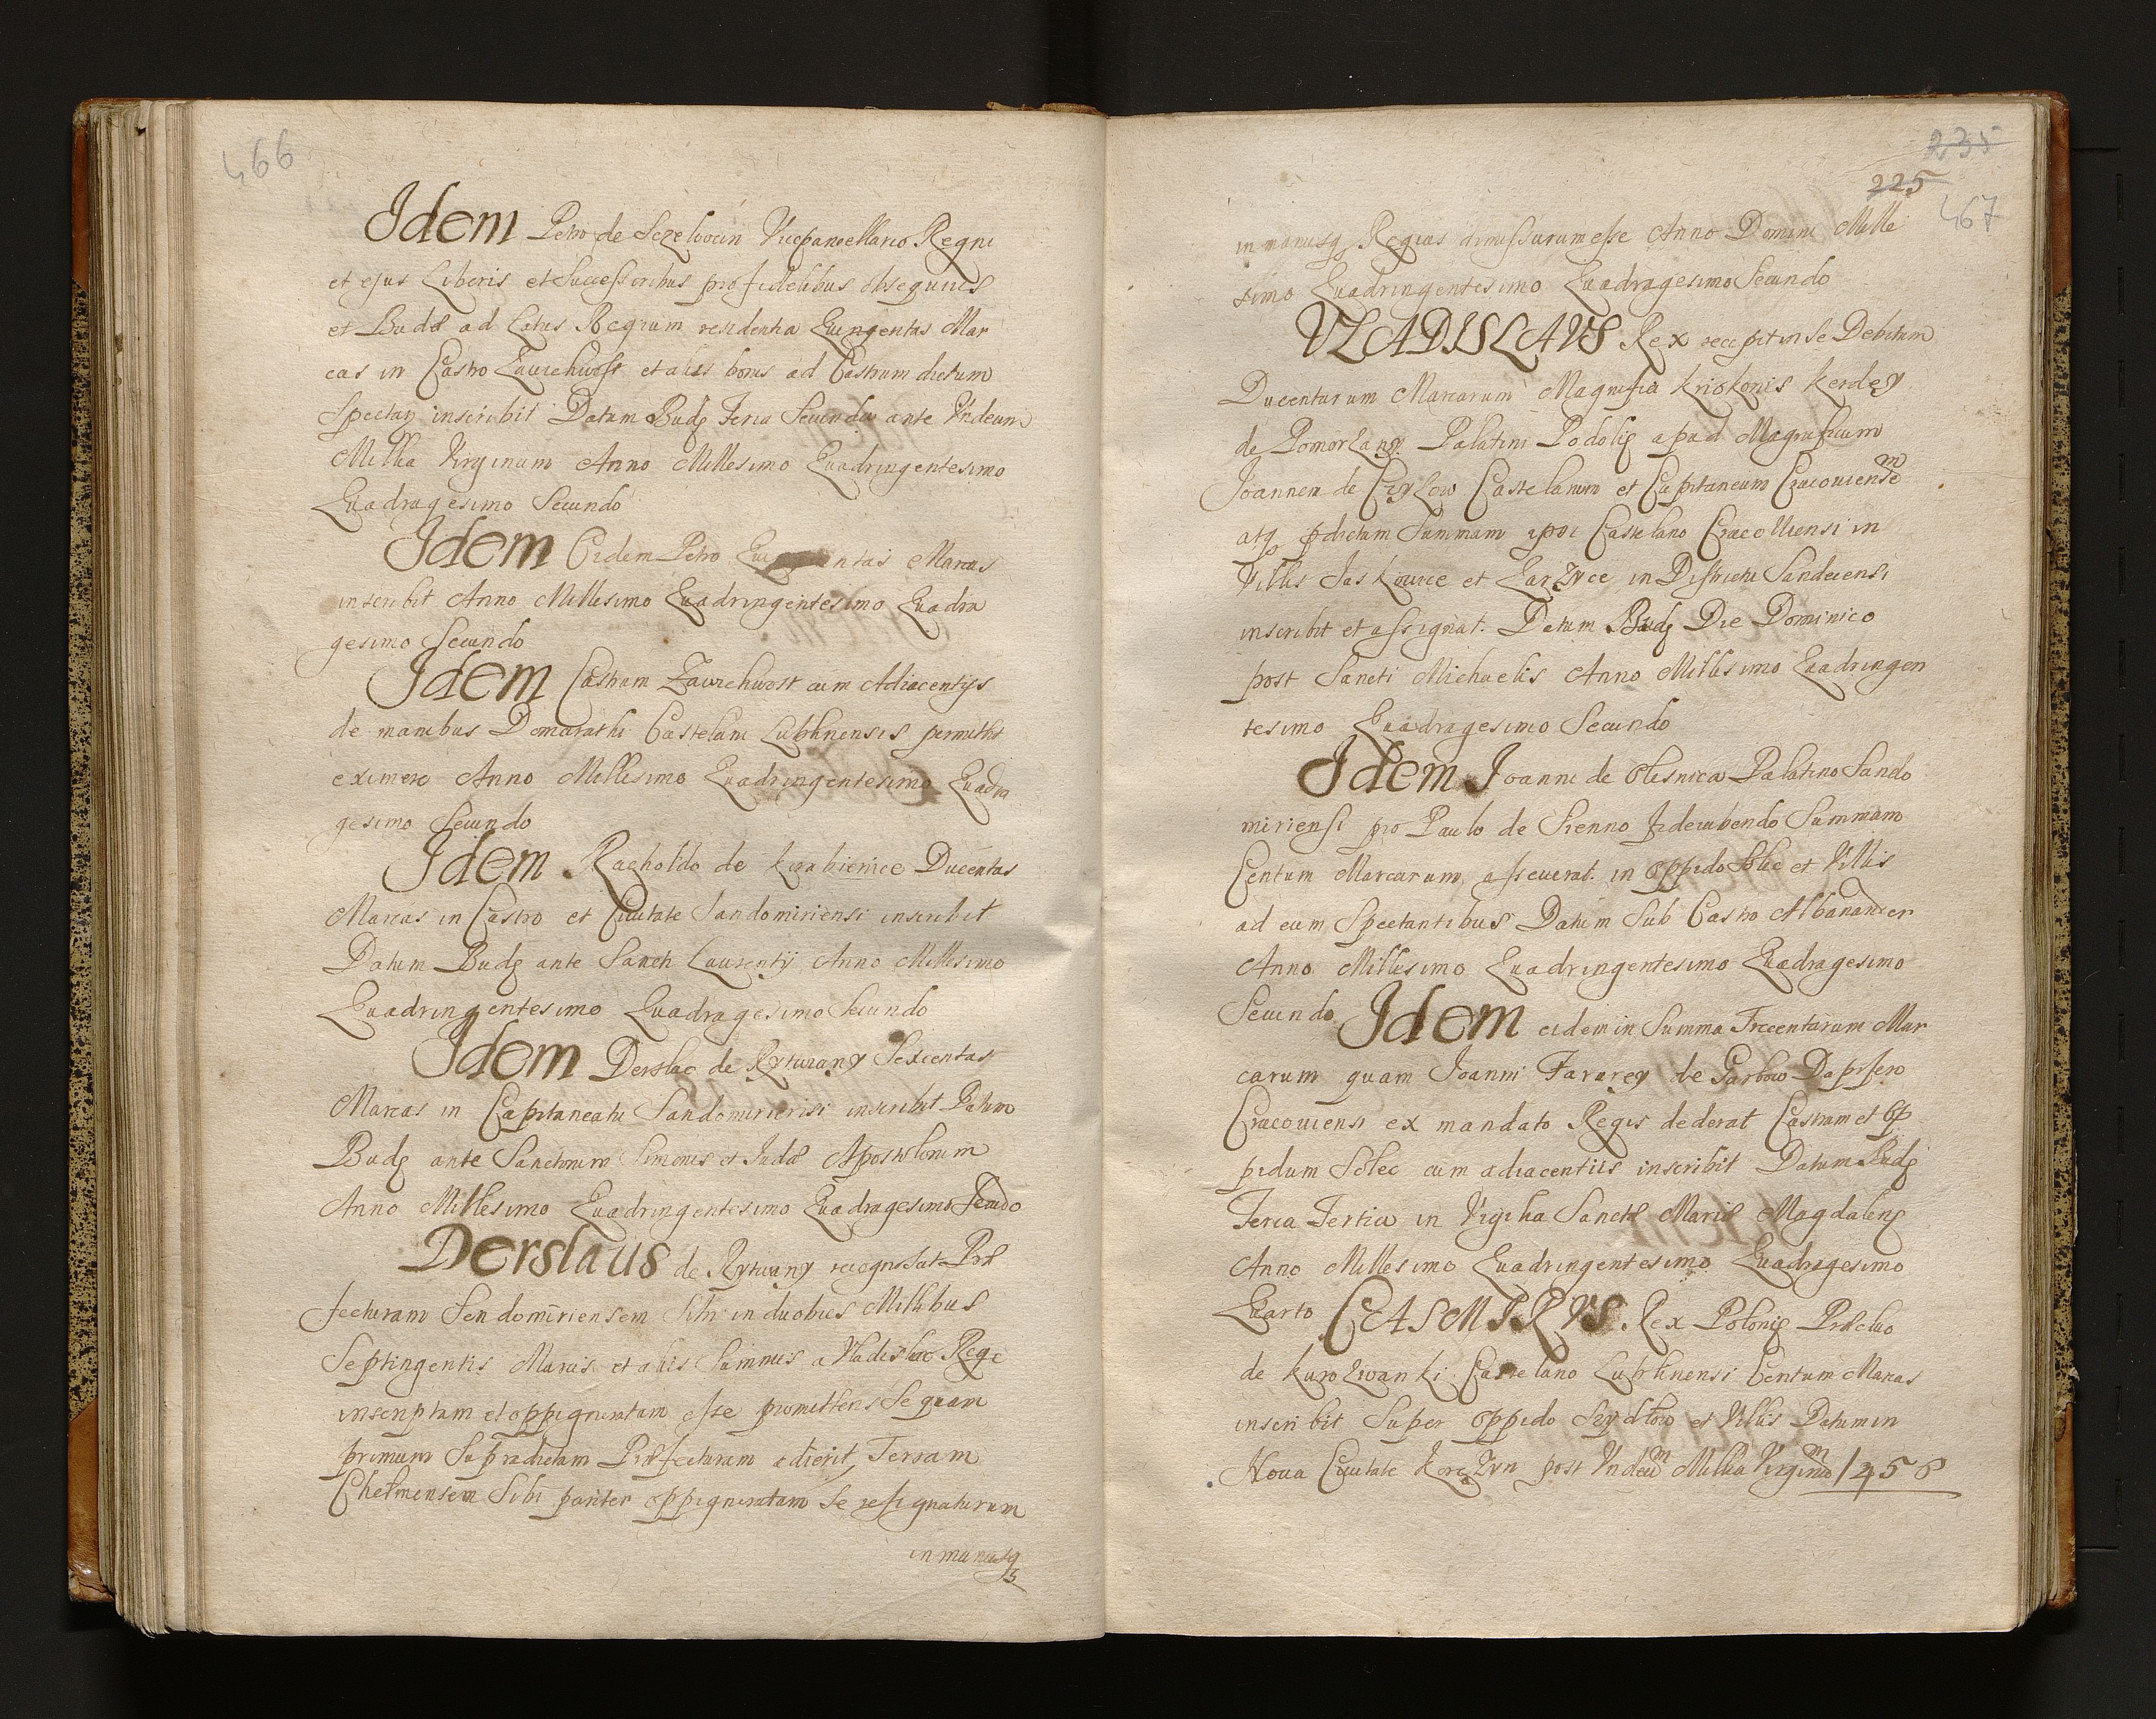 466
Idem Petro de Sczekocin Vicepancellario Regni
et ejus Liberis et Successoribus pro fidelibus obsequiis
et Budæ ad Latus Regium residentia Quingentas Mar
cas in Castro Zawichwost et aliis bonis ad Castrum dictum
Spectan inscribit Datum Budę Feria Secunda ante Undecim
Millia Virginum Anno Millesimo Quadringentesimo
Quadragesimo Secundo
Idem Eidem Petro Marcas
inscribit Anno Millesimo Quadringentesimo Quadra
gesimo Secundo
Idem Castrum Zawichwost cum Adiacentijs
de manibus Domarathi Castelani Lublinensis permittit
eximere Anno Millesimo Quadringentesimo Quadra
gesimo Secundo
Idem Racholdo de Ducentas
Marcas in Castro et Civitate Sandomiriensi inscribit
Datum Budę ante Sancti Laurentij Anno Millesimo
Quadringentesimo Quadragesimo Secundo
Idem Derslao de Rytwany Sexcentas
Marcas in Capitaneatu Sandomiriensi inscribit Datum
Budę ante Sanctorum Simonis et Judæ Apostolorum
Anno Millesimo Quadringentesimo Quadragesimo Secundo
Derslaus de Rytwany recognoscit Præ
fecturam Sendomiriensem sibi in duobus Millibus
Septingentis Marcis et aliis Summis a Vladislao Rege
inscriptam et oppigneratam esse promittens Se quam
primum Supradictam Præfecturam adierit, Terram
Chelmensem Sibi pariter oppigneratam Se resignaturum
in manusq
235
225
467
in manusq Regias dimissurum esse Anno Domini Mille
simo Quadringentesimo Quadragesimo Secundo
VLADISLAVS Rex recepit in Se Debitum
Ducentarum Marcarum Magnifici Kriskonis Kerdey
de Pomorzany Palatini Podolię apud Magnificum
Joannem de Czyzow Castelanum et Capitaneum Cracoviensem
atq pdictam Summam ipsi Castelano Cracoviensi in
Villis Jaskowice et Larzyce in Districtu Sandecensi
inscribit et assignat. Datum Budę Die Dominico
post Sancti Michaelis Anno Millesimo Quadringen
tesimo Quadragesimo Secundo
Idem Joanni de Olesnica Palatino Sando
miriensi pro Paulo de Sienno Fideiubendo Summam
Centum Marcarum asseverat. in Oppido Solec et Villis
ad eum Spectantibus Datum Sub Castro Albanander
Anno Millesimo Quadringentesimo Quadragesimo
Secundo Idem eidem in Summa Trecentarum Mar
carum quam Joanni Fararey de Garbow Dapifero
Cracoviensi ex mandato Regis dederat Castrum et Op
pidum Solec cum adiacentiis inscribit Datum Budę
Feria Tertia in Vigilia Sanctæ Mariæ Magdalenę
Anno Millesimo Quadringentesimo Quadragesimo
Quarto CASMIRVS Rex Polonię Prædslao
de Kurozwanki Castelano Lublinensi Centum Marcas
inscribit Super Oppido Szydlow et Villis Datum in
Nova Civitate Korczyn post Undecim Millia Virginum 1456